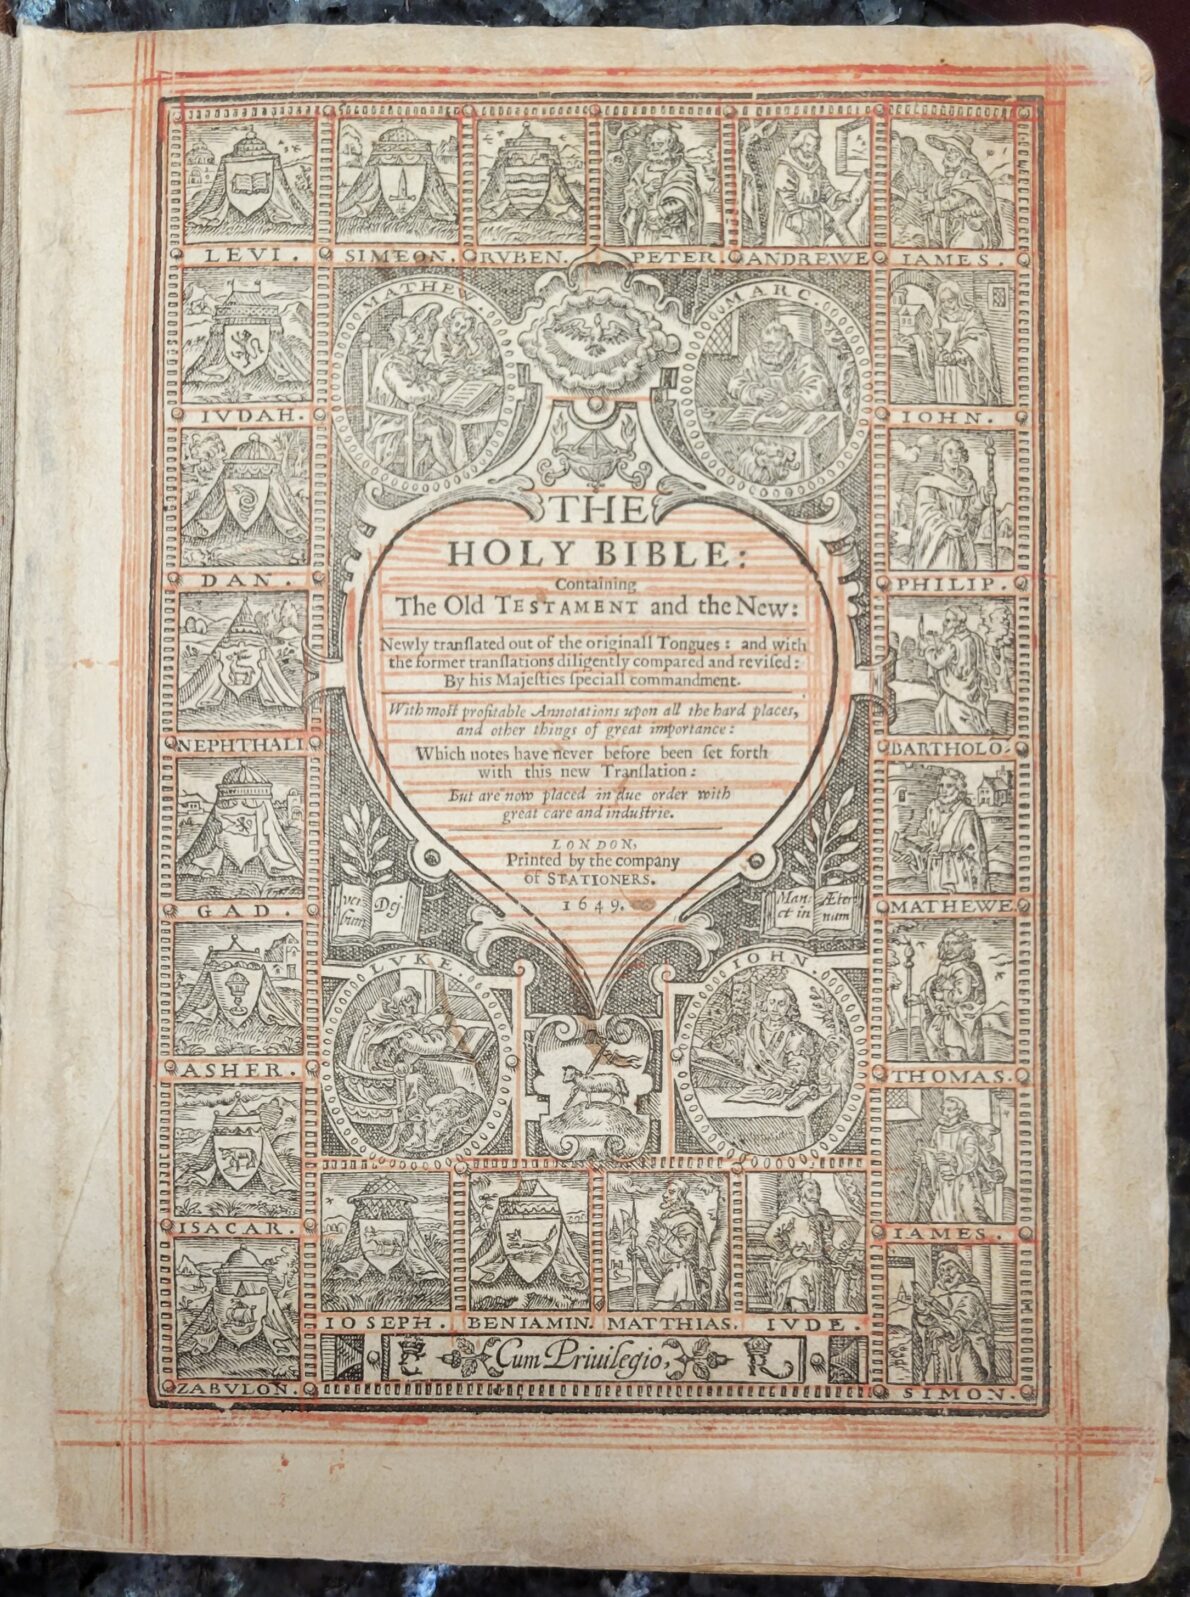 LEVI. SIMEON. RVBEN. PETER. ANDREWE IAMES.
MATHEW. MARC.
IVDAH. IOHN.
DAN. PHILIP.
NEPHTHALI BARTHOLO-
GAD. MATHEWE
ASHER. THOMAS.
ISACAR. IAMES.
ZABVLON. SIMON.
THE
HOLY BIBLE:
Containing
The Old TESTAMENT and the New:
Newly tranſlated out of the originall Tongues: and with
the former tranſlations diligently compared and reviſed:
By his Majeſties ſpeciall commandment.
With moſt profitable Annotations upon all the hard places,
and other things of great importance:
Which notes have never before been ſet forth
with this new Tranſlation:
But are now placed in due order with
great care and induſtrie.
LONDON,
Printed by the company
of STATIONERS.
1649.
ver Dej
bum
Man Æter
et in num
LVKE. IOHN.
IOSEPH. BENIAMIN. MATTHIAS. IVDE.
Cum Privilegio,